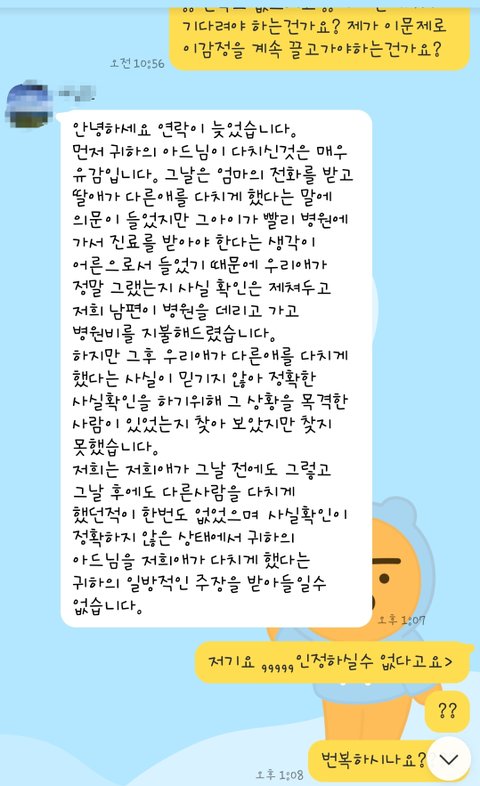 기다려야 하는건가요? 제가 이문제로
이감정을 계속 끌고가야하는건가요?
오전 10:56
안녕하세요 연락이 늦었습니다.
먼저 귀하의 아드님이 다치신것은 매우
유감입니다. 그날은 엄마의 전화를 받고
딸애가 다른애를 다치게 했다는 말에
의문이 들었지만 그아이가 빨리 병원에
가서 진료를 받아야 한다는 생각이
어른으로서 들었기 때문에 우리애가
정말 그랬는지 사실 확인은 제쳐두고
저희 남편이 병원을 데리고 가고
병원비를 지불해드렸습니다.
하지만 그후 우리애가 다른애를 다치게
했다는 사실이 믿기지 않아 정확한
사실확인을 하기위해 그 상황을 목격한
사람이 있었는지 찾아 보았지만 찾지
못했습니다.
저희는 저희애가 그날 전에도 그렇고
그날 후에도 다른사람을 다치게
했던적이 한번도 없었으며 사실확인이
정확하지 않은 상태에서 귀하의
아드님을 저희애가 다치게 했다는
귀하의 일방적인 주장을 받아들일수
없습니다.
오후 1:07
저기요 ,,,,,인정하실수 없다고요>
??
번복하시나요?
오후 1:08